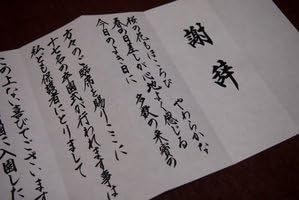 謝辞
桜の花もほころび やわらかな
春の日差しが心地よく感じる
今日のよき日に 多数の来賓の
方々のご臨席を賜り ここに
十七名の卒園式が行われます事は
私ども保護者にとりまして
この上ない喜びでございます
園入園した